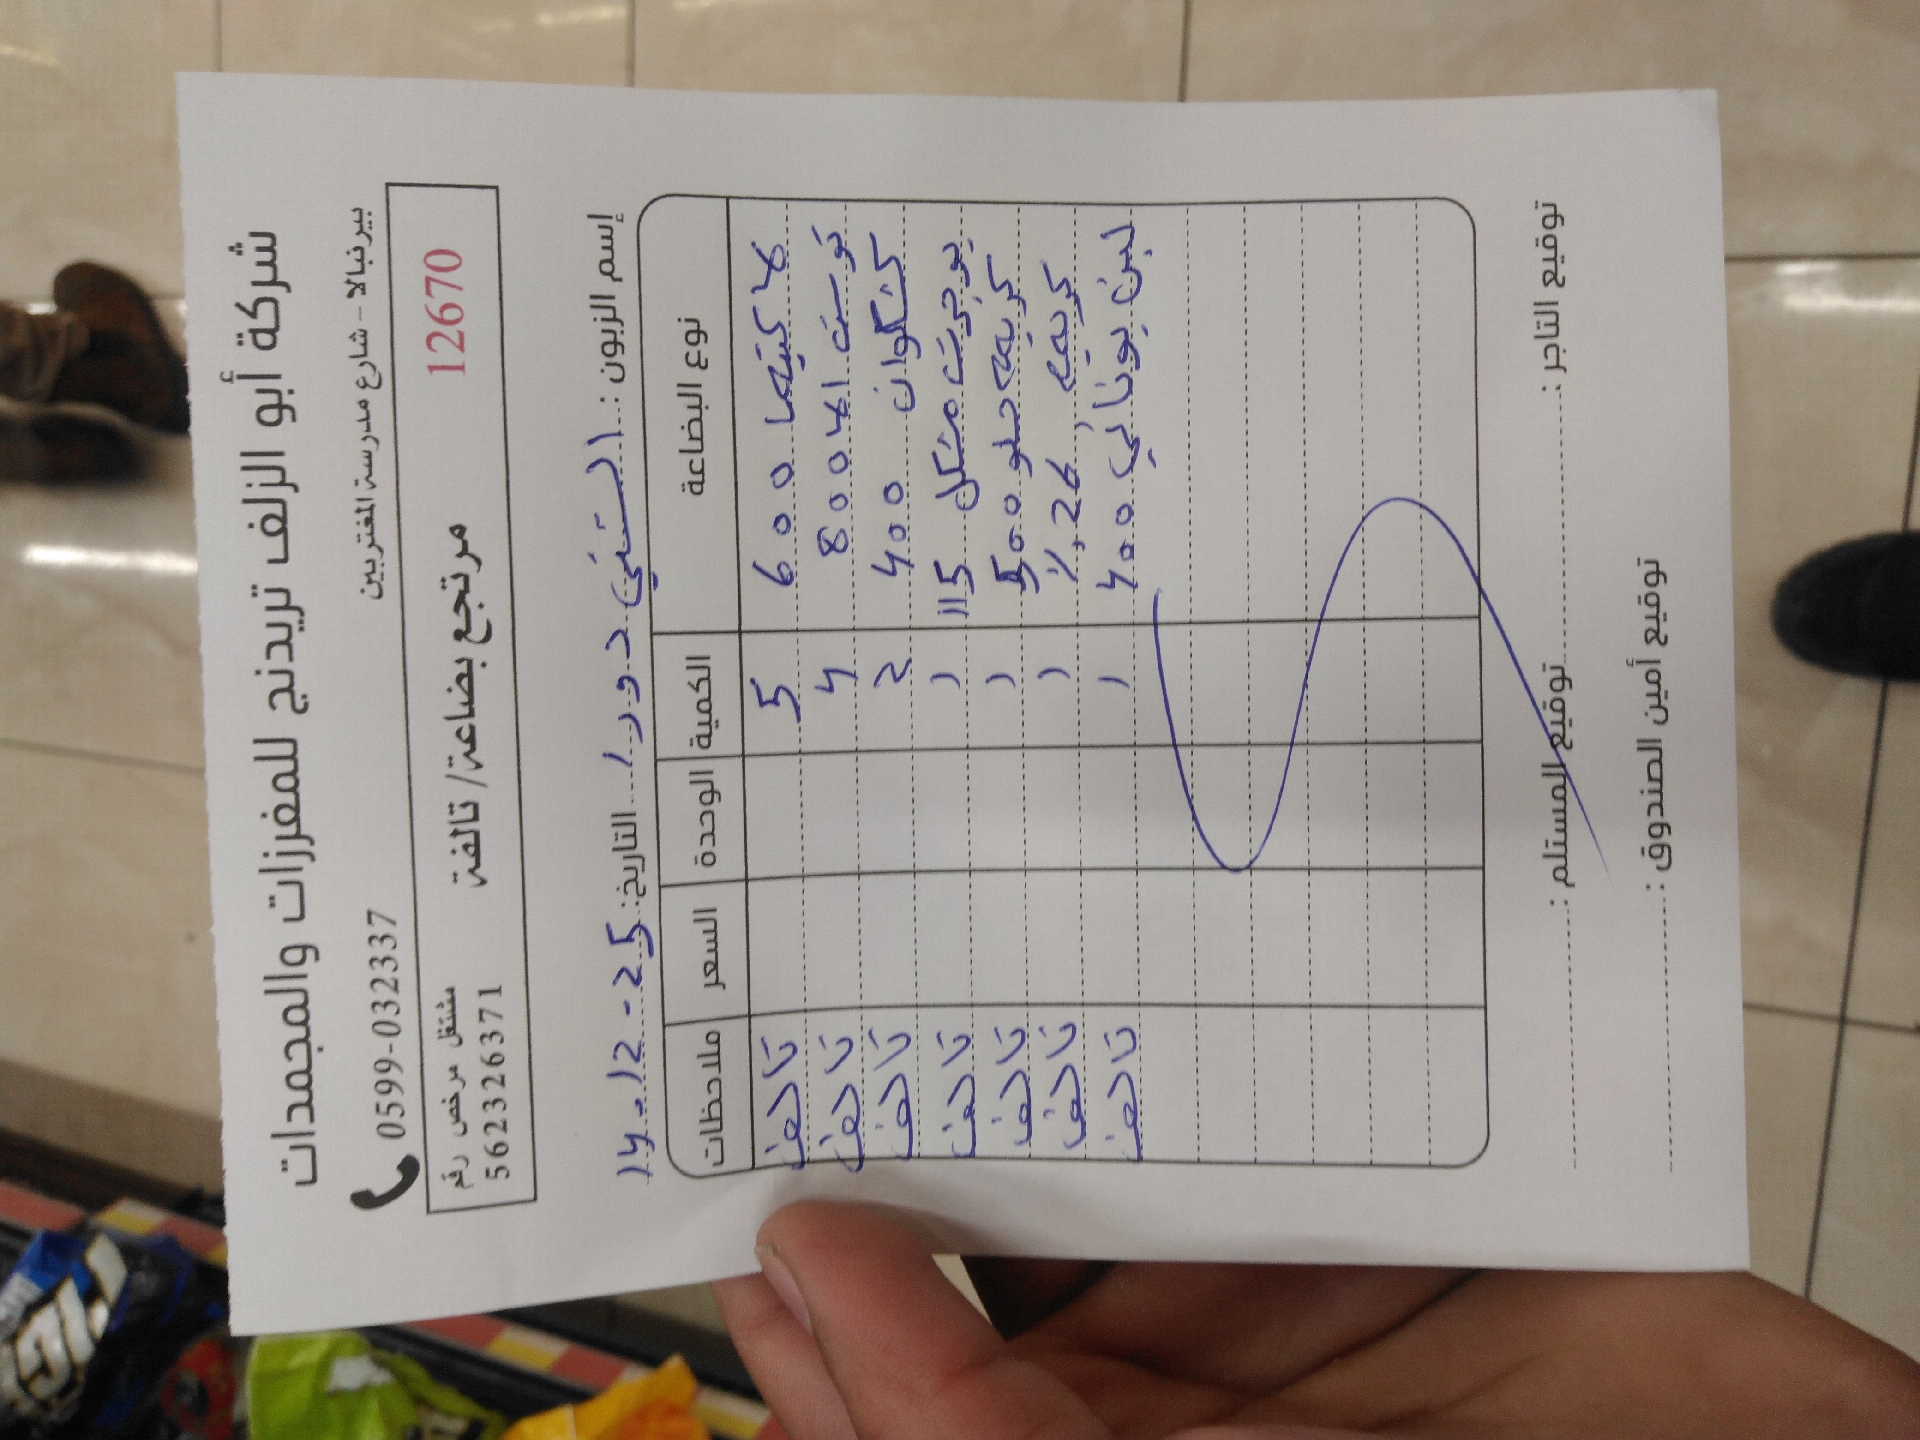 شركة أبو الزلف تريدنج للمفرزات والمجمدات
بيرنبالا - شارع مدرسة المغتربين 0599-032337
12670 مرتجع بضاعة/ تالفة مشتغل مرخص رقم
562326371
إسم الزبون : السني دورا التاريخ: 14-12-25
نوع البضاعة الكمية الوحدة السعر ملاحظات
600 5 تالف
توست 800 4 تالف
400 2 تالف
يوجرت مشكل 115 1 تالف
كريمه حلو 500 1 تالف
كريمه 26٪ 1 تالف
لبن يوناني 400 1 تالف
توقيع التاجر : توقيع المستلم :
توقيع أمين الصندوق :